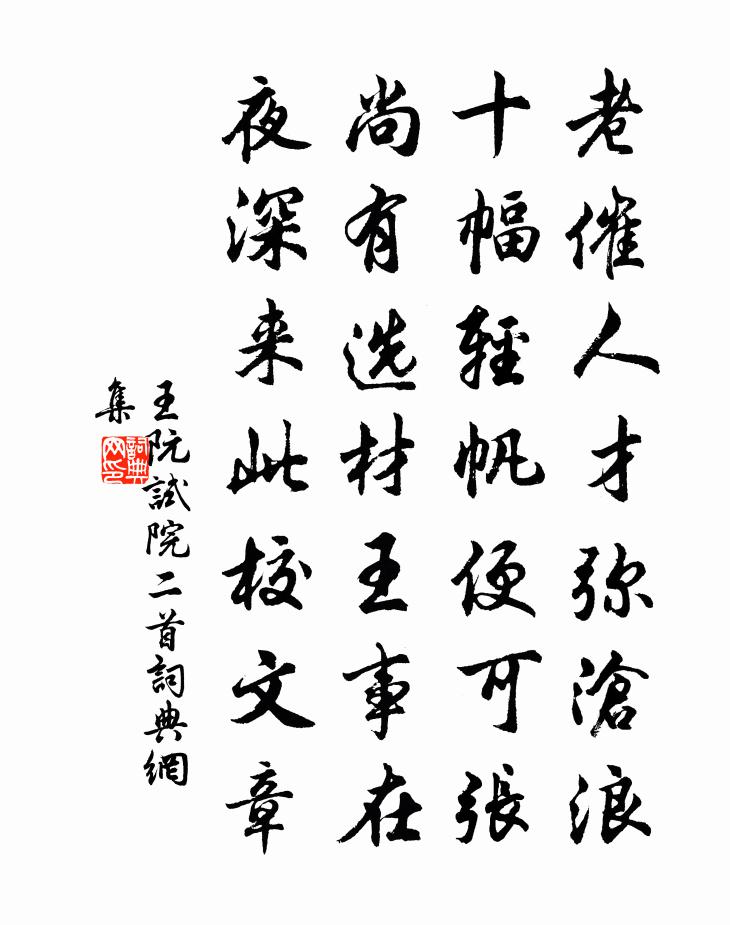 老催人才弥滄浪
十幅輕帆便可張
尚有选材王事在
夜深来此校文章
王阮試院二首詞典網
集
詞典
网印